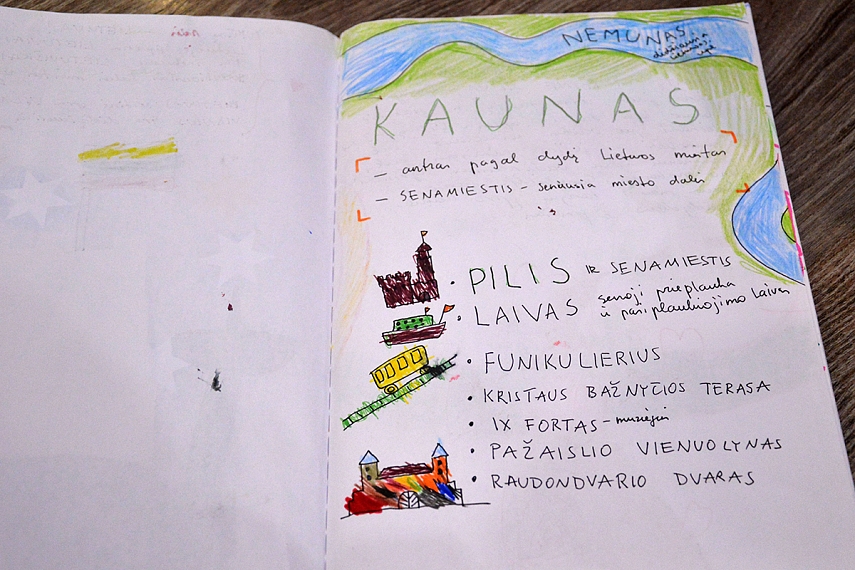 NEMUNAS
KAUNAS
– antras pagal dydį Lietuvos miestas
– SENAMIESTIS – seniausia miesto dalis
• PILIS IR SENAMIESTIS
• LAIVAS senoji prieplauka
ir pasiplaukiojimo laivai
• FUNIKULIERIUS
• KRISTAUS BAŽNYČIOS TERASA
• IX FORTAS – muziejus
• PAŽAISLIO VIENUOLYNAS
• RAUDONDVARIO DVARAS